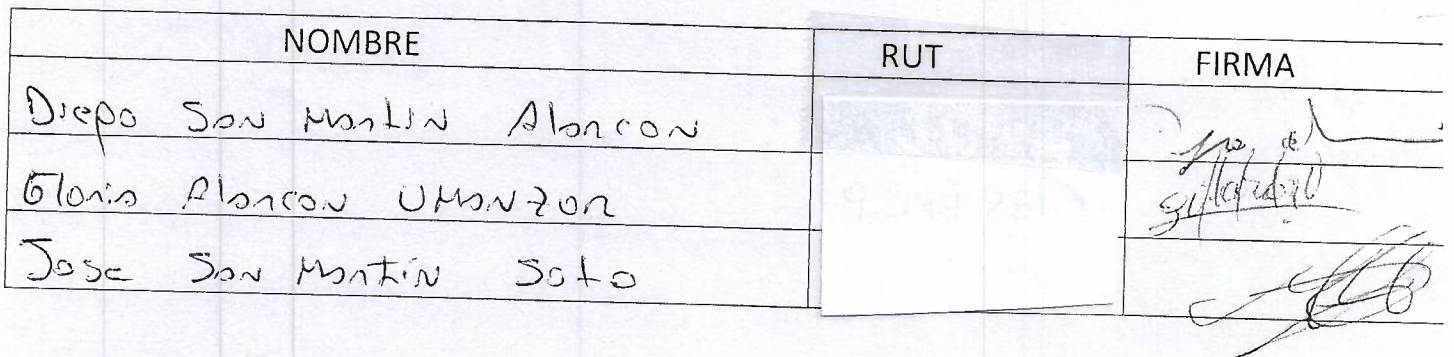 NOMBRE RUT FIRMA
Diego San Martin Alarcon
Gloria Alarcon Umanzor
Jose San Martín Soto